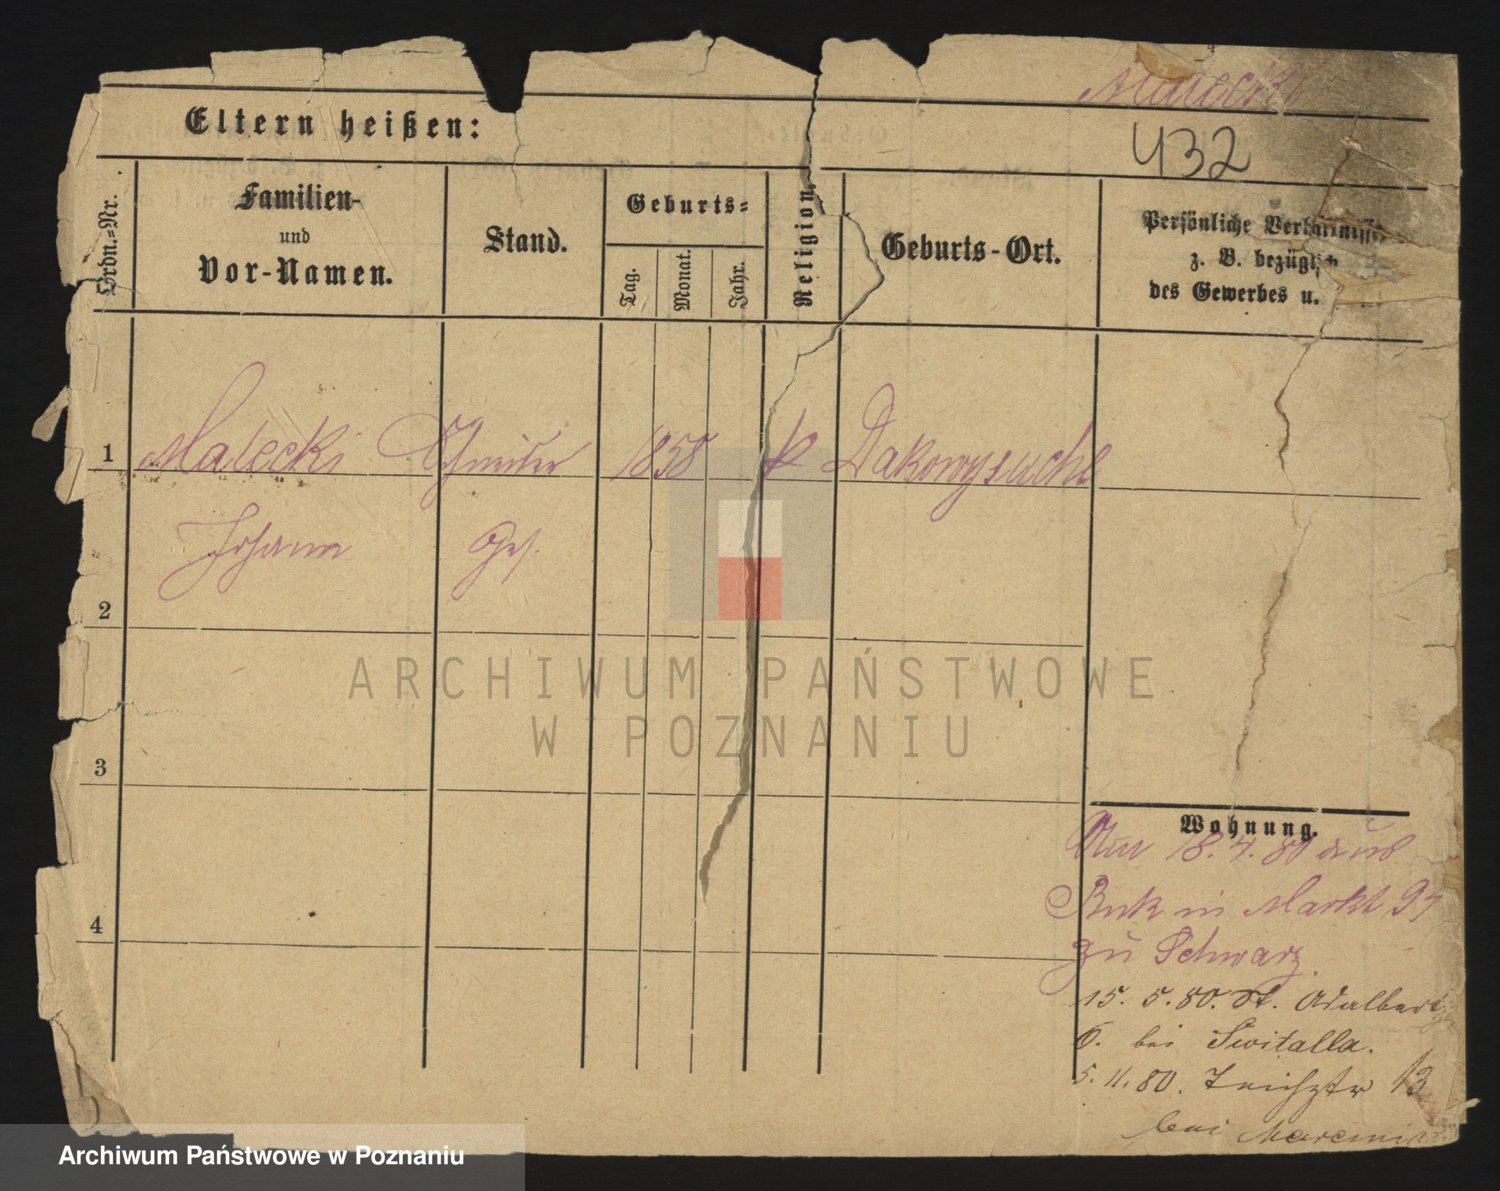 Malecki
Eltern heißen:
432
Ordn.-Nr.
Familien-
und
Vor-Namen.
Stand.
Geburts-
Tag.
Monat.
Jahr.
Religion.
Geburts-Ort.
Persönliche Verhältnisse
z. B. bezügl
des Gewerbes u.
1 Malecki Schneider 1858 k Dakowysuche
Johann Ges.
2
3
4
Wohnung.
18.4.80 aus
Buk in Markt 97
zu Schwarz.
15. 5. 80. St. Adalbert
6. bei Switalla.
5. 11. 80. Teichstr 13
bei
ARCHIWUM PAŃSTWOWE
W POZNANIU
Archiwum Państwowe w Poznaniu